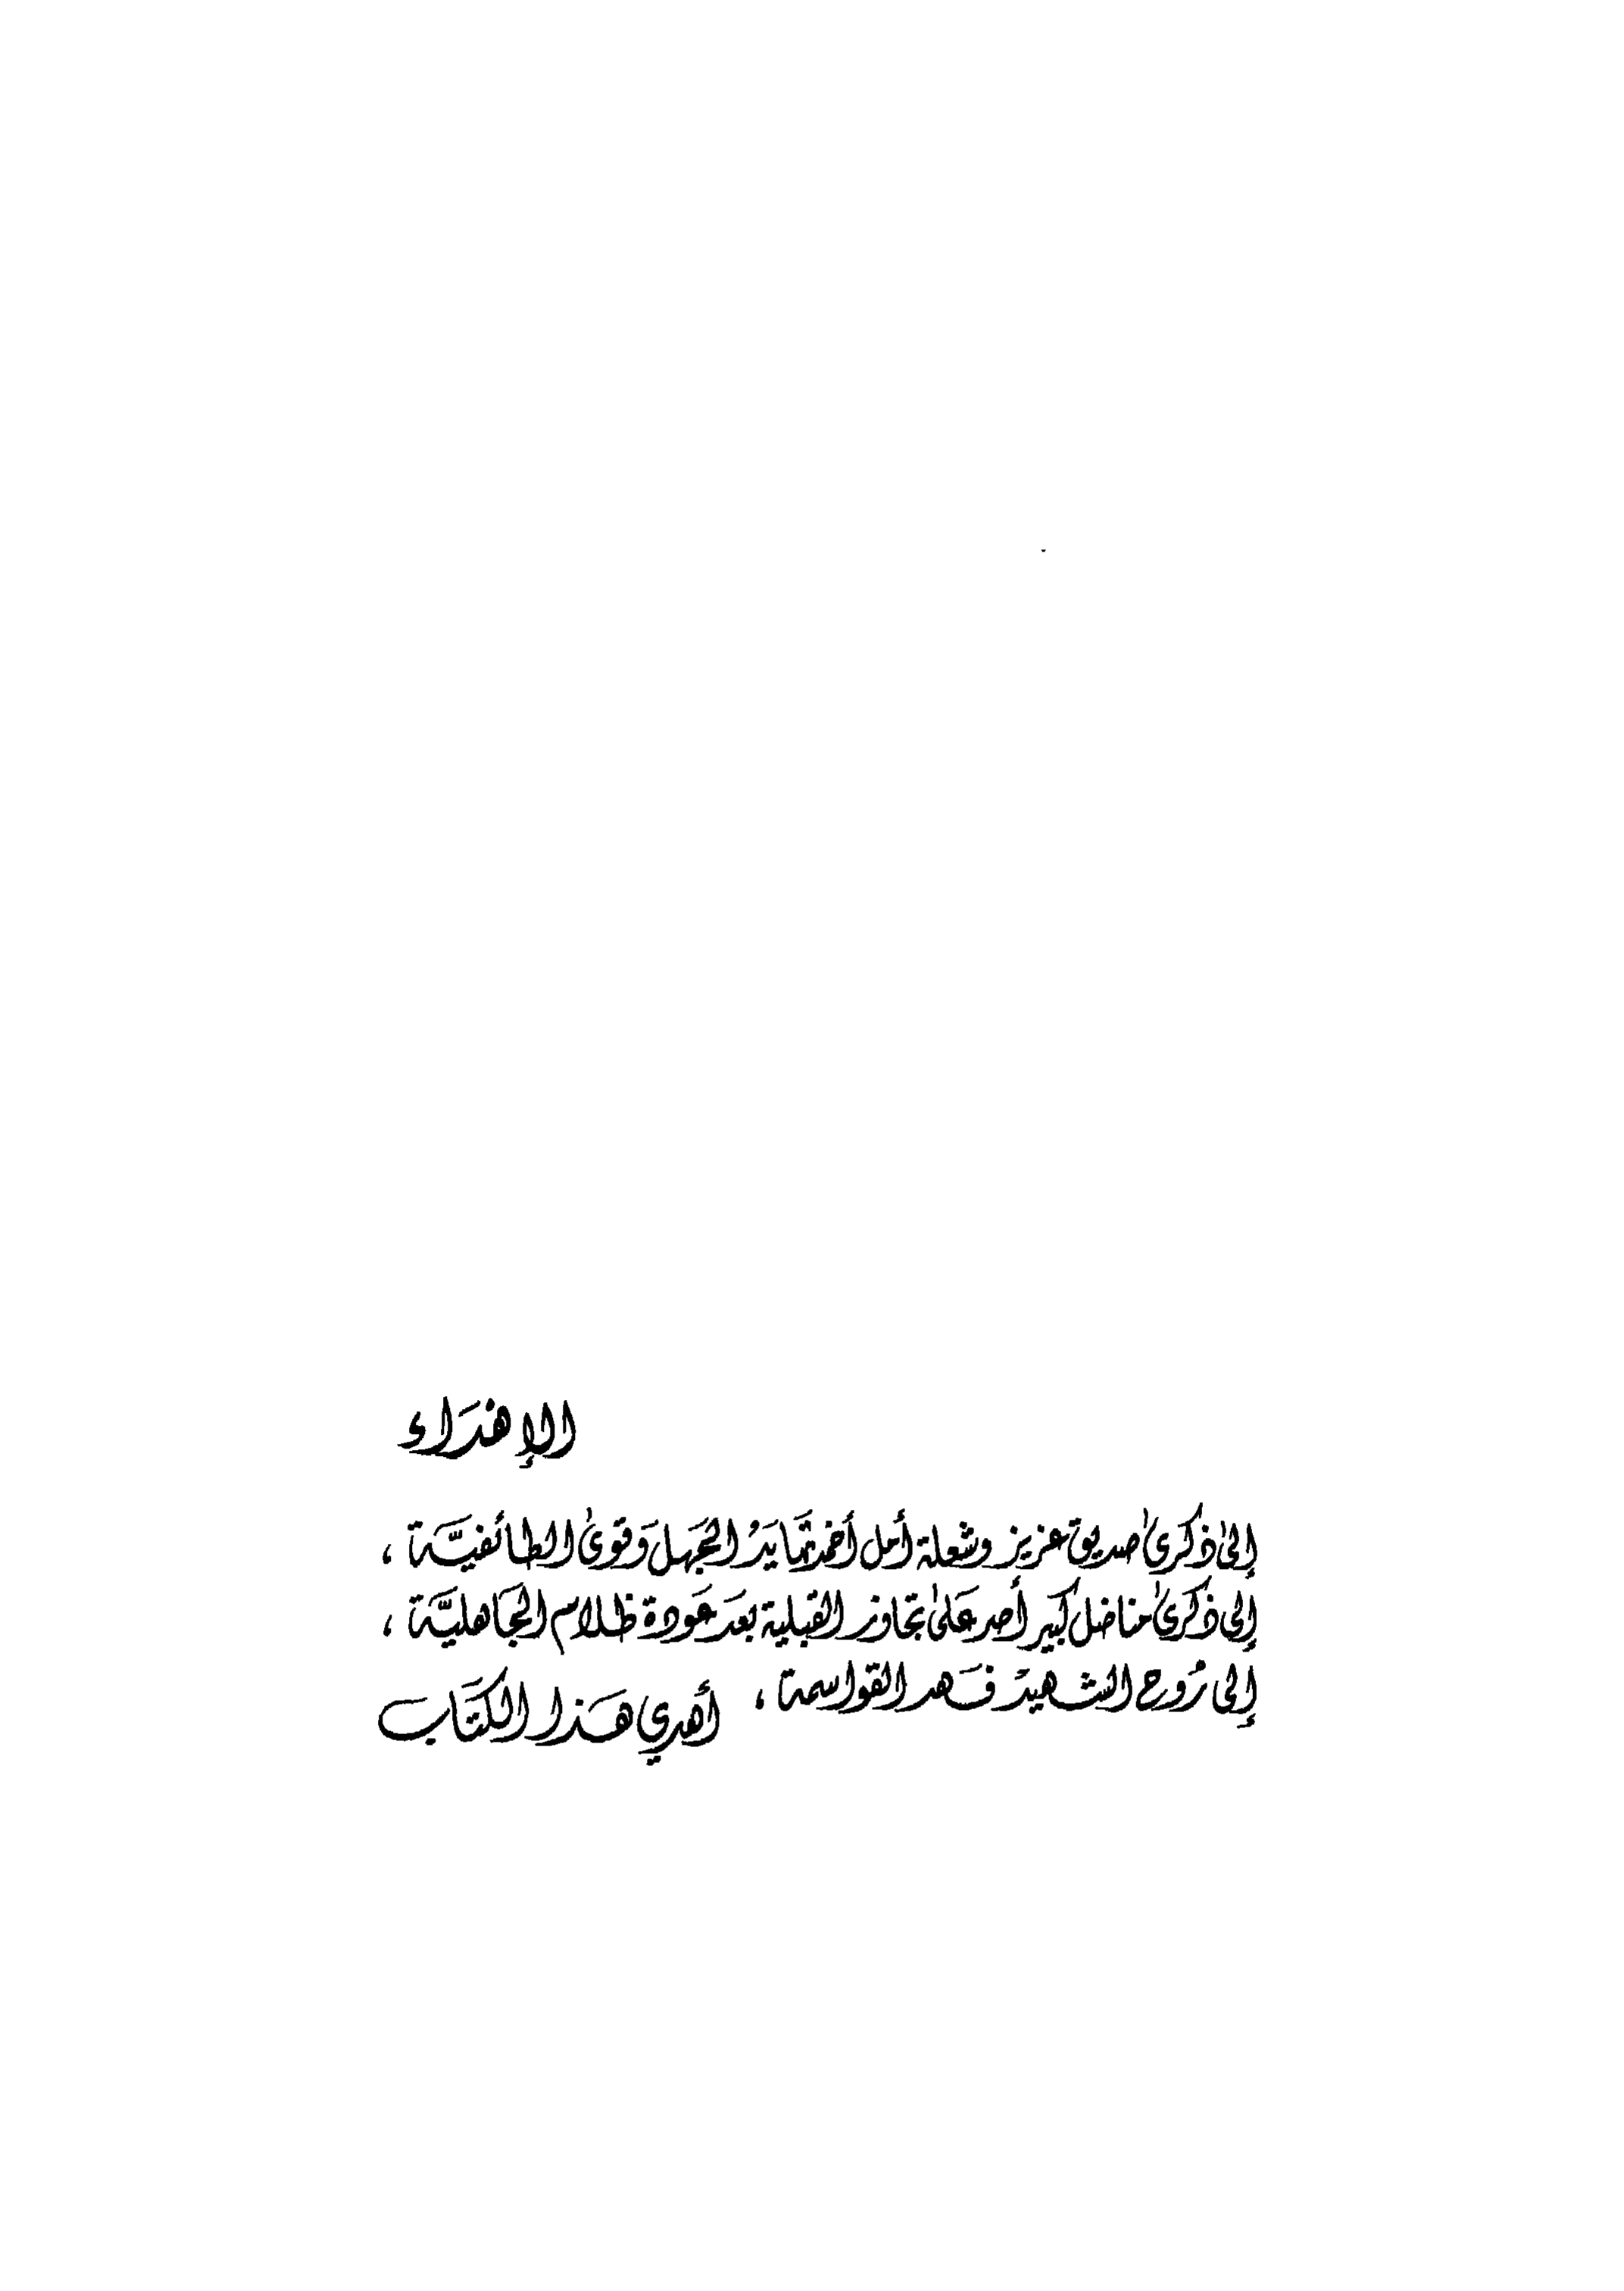 الإهدَاء
إلىٰ ذكرىٰ صديق عزيز وشعلة أمل أخمدتهَا يَدُ الجَهل وَقوىٰ الطائفيَّة ،
إلى ذكرىٰ مناضل كبير أصر عَلىٰ تجاوز القبلية بعَد عَودة ظلام الجَاهليَّة ،
إلى رُوح الشهيدَ فهَد القواسمة ، أهدي هَذا الكتَاب